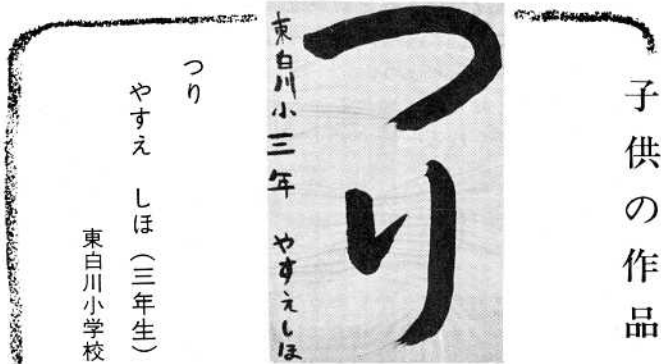 子供の作品
つり
東白川小三年 やすえしほ
つり
やすえ しほ(三年生)
東白川小学校